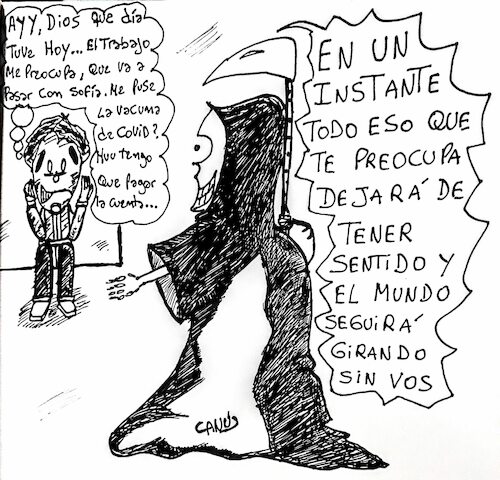 AYY, DIOS QUE DÍA
TUVE HOY... EL TRABAJO
ME PREOCUPA, QUE VA A
PASAR CON SOFÍA. ME PUSE
LA VACUMA
DE COVID?
HUU TENGO
QUE PAGAR
LA CUENTA...
EN UN
INSTANTE
TODO ESO QUE
TE PREOCUPA
DEJARÁ DE
TENER
SENTIDO Y
EL MUNDO
SEGUIRÁ
GIRANDO
SIN VOS
CANUS